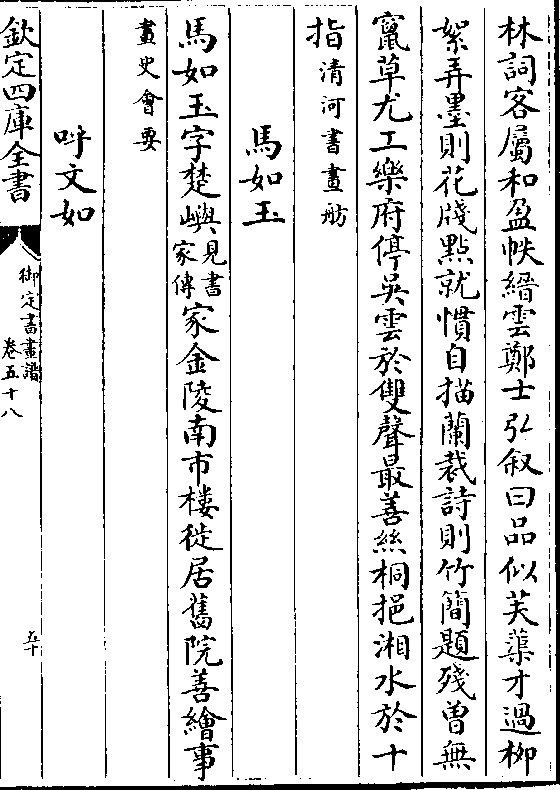 林詞客屬和盈帙縉雲鄭士弘叙曰品似芙蕖才過柳
絮弄墨則花牋點就慣自描蘭裁詩則竹簡題殘曽無
竄草尤工樂府停吳雲於雙聲最善絲桐挹湘水於十
指清河書畫舫
馬如玉
馬如玉字楚嶼見書家傳家金陵南市樓徙居舊院善繪事
畫史會要
呼文如
欽定四庫全書
御定書畫譜
卷五十八
五十